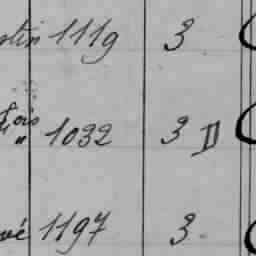 stin 1119 3
Fois
" 1032 3 D
vé 1197 3